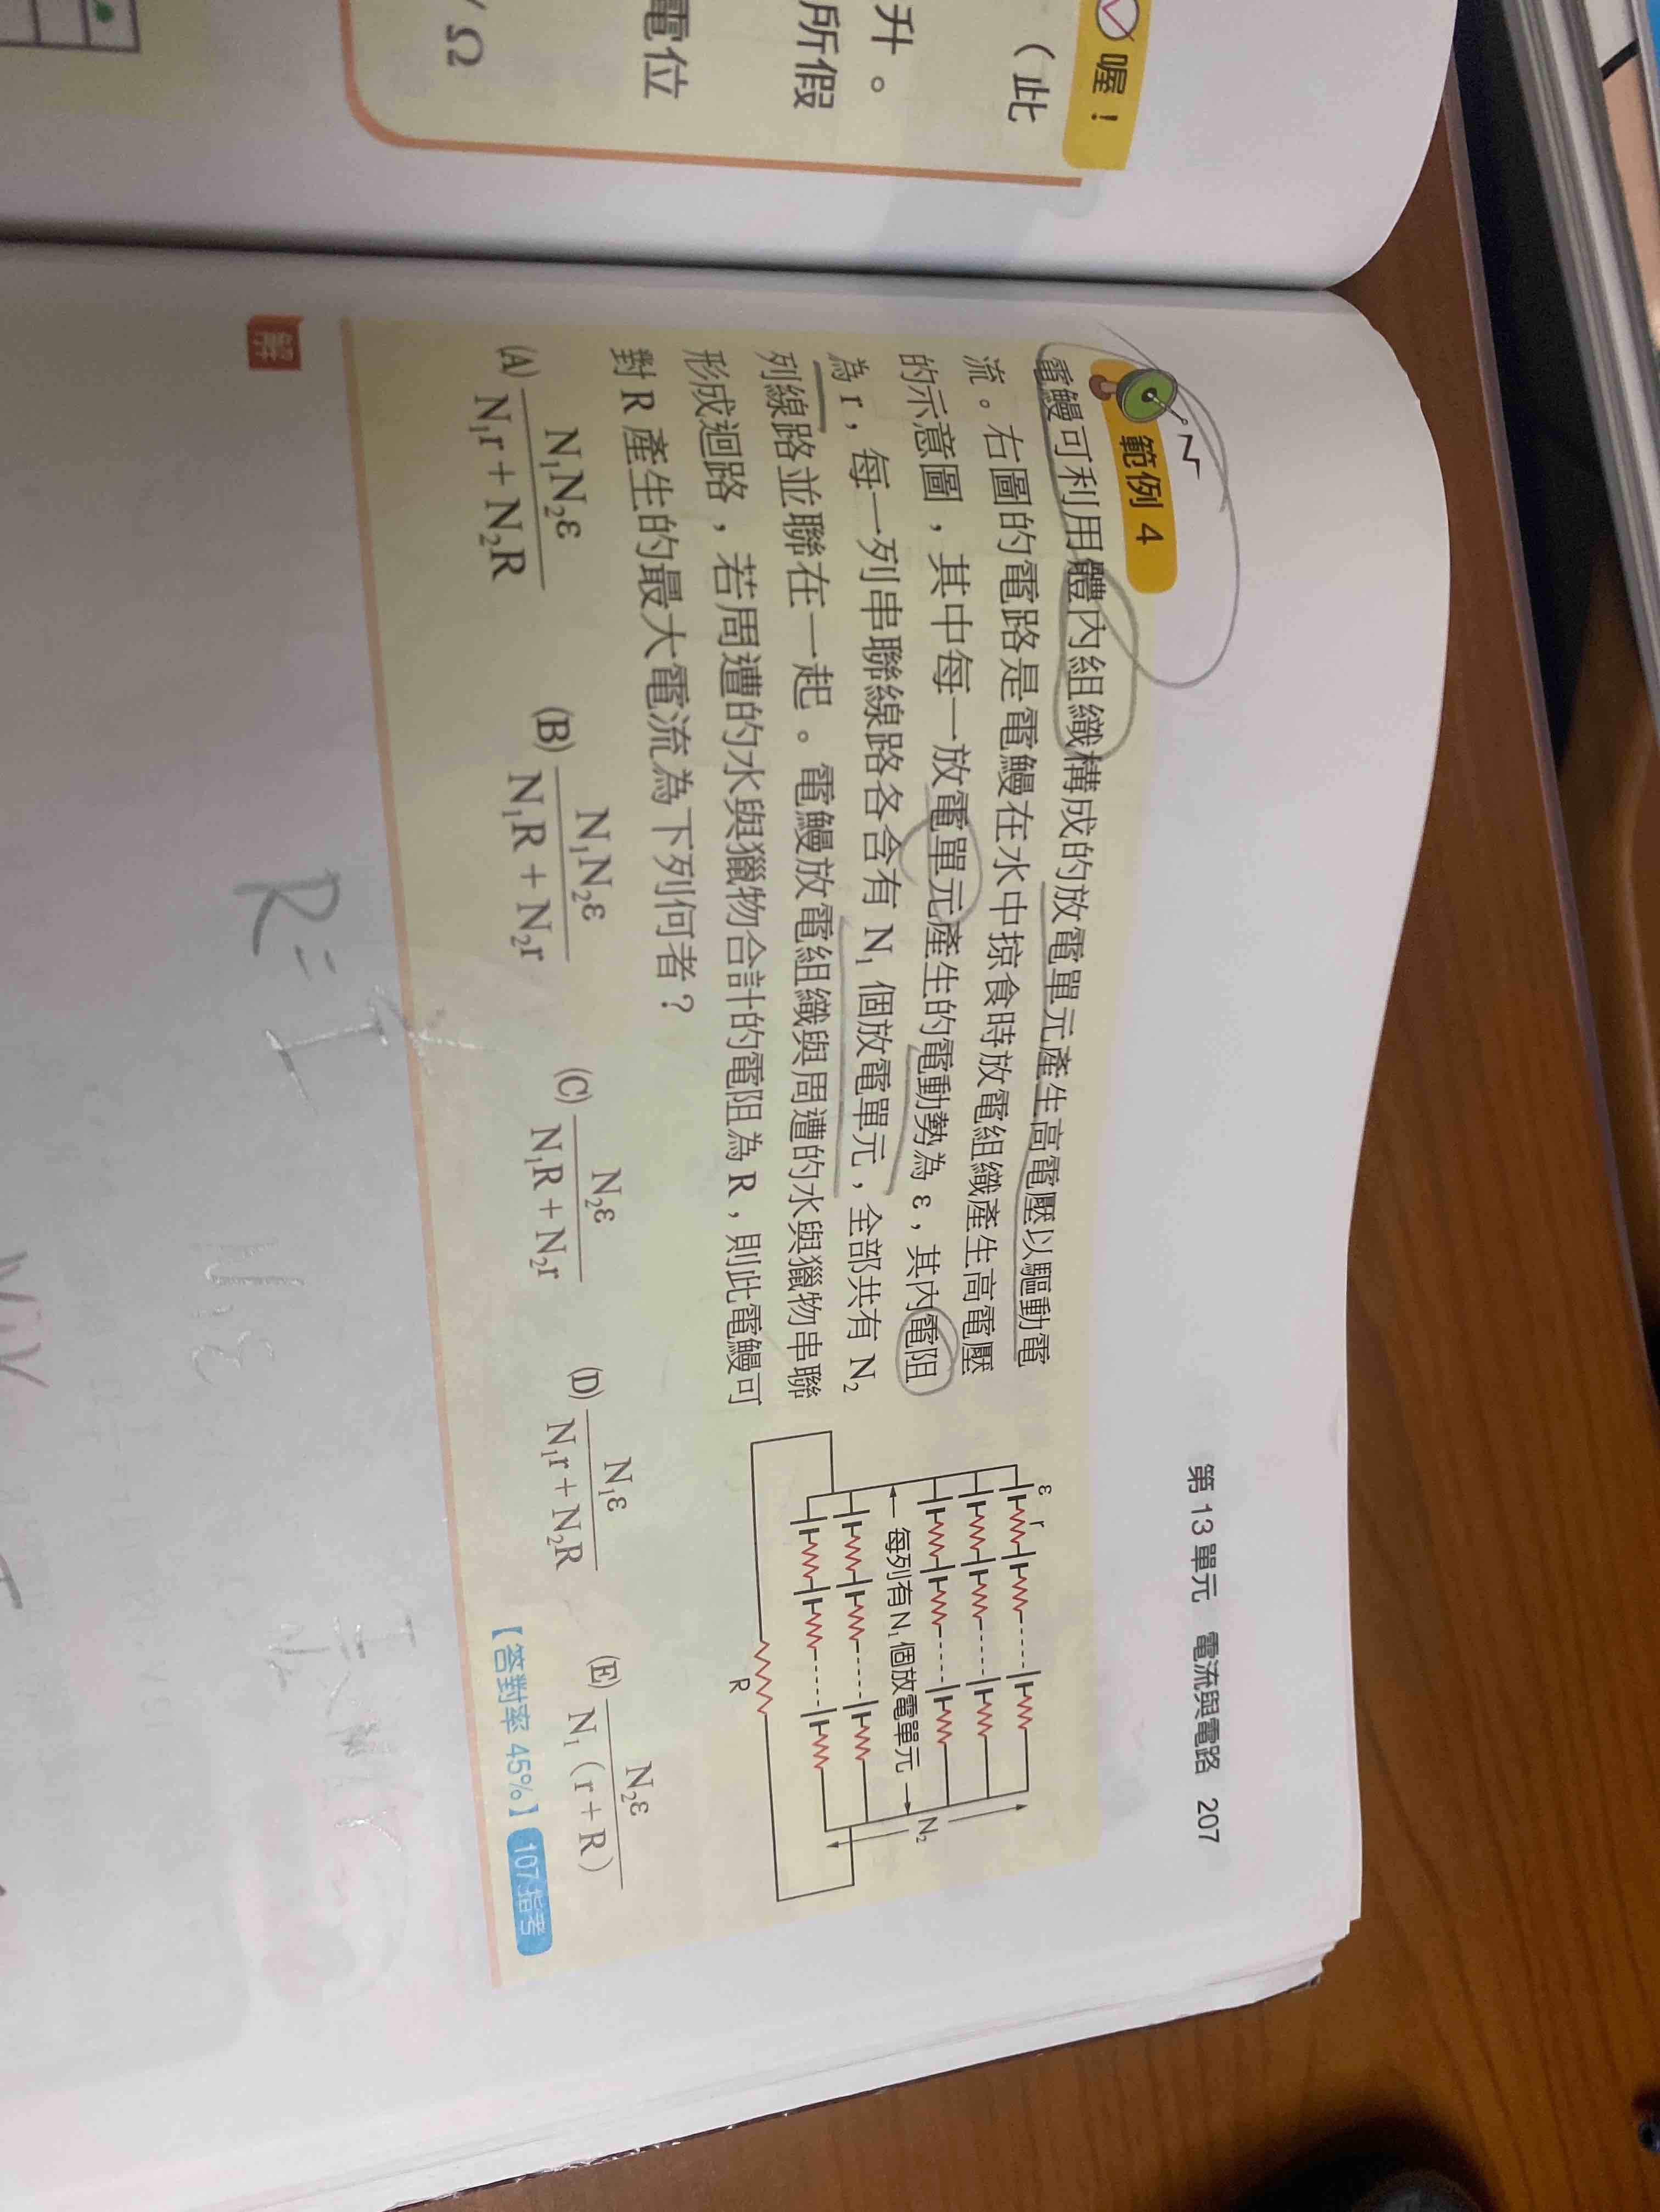 喔！
（此
升。
所假
電位
/ Ω
第 13 單元 電流與電路 207
範例 4
電鰻可利用體內組織構成的放電單元產生高電壓以驅動電
流。右圖的電路是電鰻在水中掠食時放電組織產生高電壓
的示意圖，其中每一放電單元產生的電動勢為 ε，其內電阻
為 r，每一列串聯線路各含有 N₁ 個放電單元，全部共有 N₂
列線路並聯在一起。電鰻放電組織與周遭的水與獵物串聯
形成迴路，若周遭的水與獵物合計的電阻為 R，則此電鰻可
對 R 產生的最大電流為下列何者？
ε r
每列有N₁個放電單元
N₂
R
(A) N₁N₂ε / N₁r＋N₂R (B) N₁N₂ε / N₁R＋N₂r (C) N₂ε / N₁R＋N₂r (D) N₁ε / N₁r＋N₂R (E) N₂ε / N₁（r＋R）
【答對率 45%】 107.指考
解
R = I
N₁ε